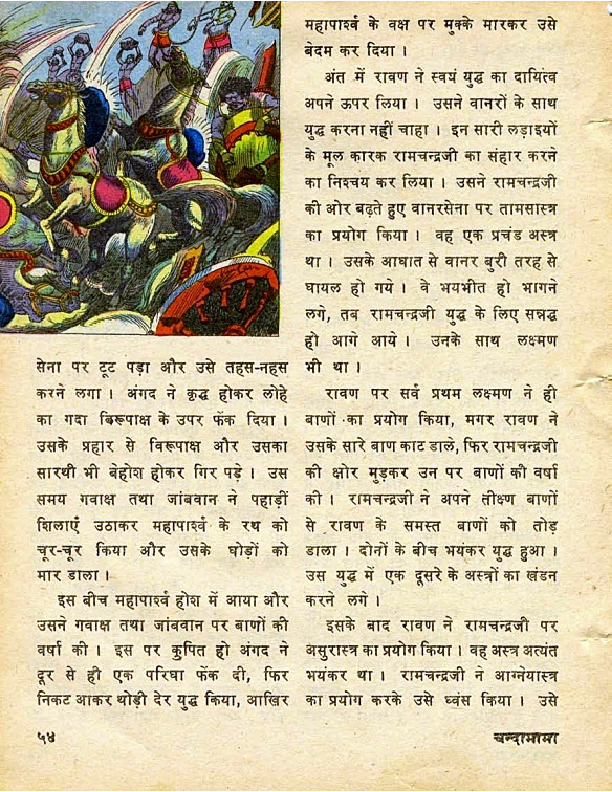 सेना पर टूट पड़ा और उसे तहस-नहस
करने लगा । अंगद ने क्रुद्ध होकर लोहे
का गदा बिरूपाक्ष के उपर फेंक दिया ।
उसके प्रहार से विरूपाक्ष और उसका
सारथी भी बेहोश होकर गिर पड़े । उस
समय गवाक्ष तथा जांबवान ने पहाड़ी
शिलाएँ उठाकर महापार्श्व के रथ को
चूर-चूर किया और उसके घोड़ों को
मार डाला ।
इस बीच महापार्श्व होश में आया और
उसने गवाक्ष तथा जांबवान पर बाणों की
वर्षा की । इस पर कुपित हो अंगद ने
दूर से ही एक परिघा फेंक दी, फिर
निकट आकर थोड़ी देर युद्ध किया, आखिर
महापार्श्व के वक्ष पर मुक्के मारकर उसे
बेदम कर दिया ।
अंत में रावण ने स्वयं युद्ध का दायित्व
अपने ऊपर लिया । उसने वानरों के साथ
युद्ध करना नहीं चाहा । इन सारी लड़ाइयों
के मूल कारक रामचन्द्रजी का संहार करने
का निश्चय कर लिया । उसने रामचन्द्रजी
की ओर बढ़ते हुए वानरसेना पर तामसास्त्र
का प्रयोग किया । वह एक प्रचंड अस्त्र
था । उसके आघात से वानर बुरी तरह से
घायल हो गये । वे भयभीत हो भागने
लगे, तब रामचन्द्रजी युद्ध के लिए सन्नद्ध
हो आगे आये । उनके साथ लक्ष्मण
भी था ।
रावण पर सर्व प्रथम लक्ष्मण ने ही
बाणों का प्रयोग किया, मगर रावण ने
उसके सारे बाण काट डाले, फिर रामचन्द्रजी
की क्षोर मुड़कर उन पर बाणों की वर्षा
की । रामचन्द्रजी ने अपने तीक्ष्ण बाणों
से रावण के समस्त बाणों को तोड़
डाला । दोनों के बीच भयंकर युद्ध हुआ ।
उस युद्ध में एक दूसरे के अस्त्रों का खंडन
करने लगे ।
इसके बाद रावण ने रामचन्द्रजी पर
असुरास्त्र का प्रयोग किया । वह अस्त्र अत्यंत
भयंकर था । रामचन्द्रजी ने आग्नेयास्त्र
का प्रयोग करके उसे ध्वंस किया । उसे
५४
चन्दामामा